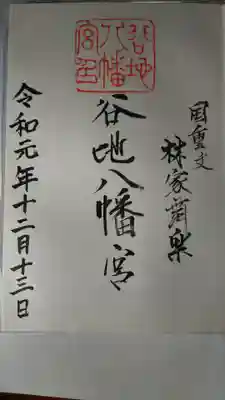 国重文
林家舞楽
谷地八幡宮
谷地八幡宮
令和元年十二月十三日